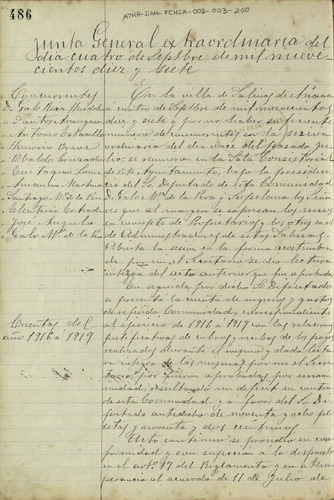 486
ATHA-DAH-FCHSA-003-003-200
Junta General extraordinaria del
dia cuatro de Sepbre de mil nueve-
cientos diez y siete
Concurrentes
D. Galo
Santos
Antonio
Honorio
Ubaldo
Eustaquio
Santiago Mz de la
Eleuterio
José Angulo
Galo Mz de la
En la villa de Salinas de Añana
a cuatro de Sepbre de mil novecientos
diez y siete y por no haber suficiente
número de concurrentes en la sesión
ordinaria del dia del pasado
se reunieron en la Sala Consistorial
de este Ayuntamiento, bajo la presiden-
cia del Sr. Diputado de esta Comunidad
D. Galo Mz de la y los Seño-
res que al margen se expresan los unos
en concepto de Propietarios y los otros en el
de Administradores de estas Salinas.
Abierta la sesión en la forma acostumbra-
da, por mi el Secretario se dio lectura
íntegra del acta anterior que fue aprobada.
Cuentas del
año 1916 a 1917
En seguida por dicho Sr. Diputado
se presentó la cuenta de ingresos y gastos
de referida Comunidad, correspondiente
al ejercicio de 1916 a 1917 con las relaciones
justificativas de cobros y recibos de los pagos
realizados durante el mismo y dada lectu-
ra íntegra de las mismas por mi el Secre-
tario, fueron aprobadas por unani-
midad, resultando un deficit en contra
de esta Comunidad y a favor del Sr. Di-
putado antedicho de noventa y ocho pe-
setas y noventa y dos céntimos.
Acto continuo se procedió en con-
formidad y con sujeción a lo dispuesto
en el artº 17 del Reglamento y en
al acuerdo de 11 de Julio de